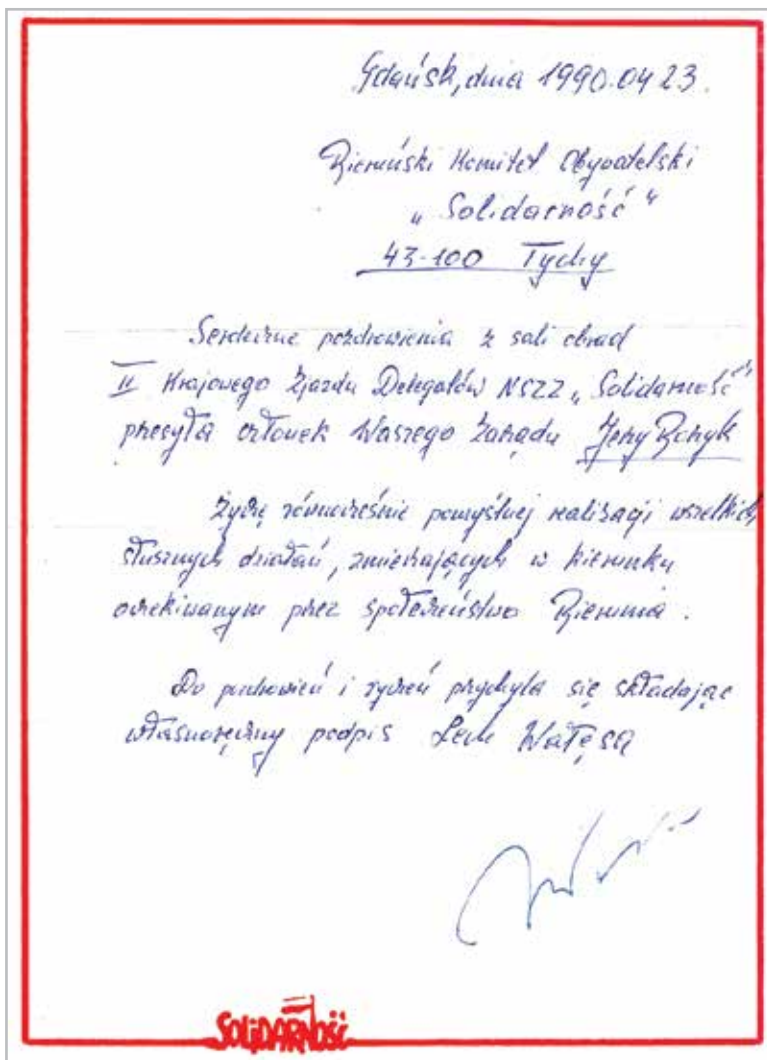 Gdańsk, dnia 1990.04 23.
Bieruński Komitet Obywatelski
„Solidarność"
43-100 Tychy
Serdeczne pozdrowienia z sali obrad
II Krajowego Zjazdu Delegatów NSZZ „Solidarność"
przesyła członek Waszego Zarządu Jerzy
Życzę równocześnie pomyślnej realizacji wszelkich
słusznych działań, zmierzających w kierunku
oczekiwanym przez społeczeństwo Bierunia.
Do pozdrowień i życzeń przychyla się składając
własnoręczny podpis Lech Wałęsa
SOLIDARNOŚĆ